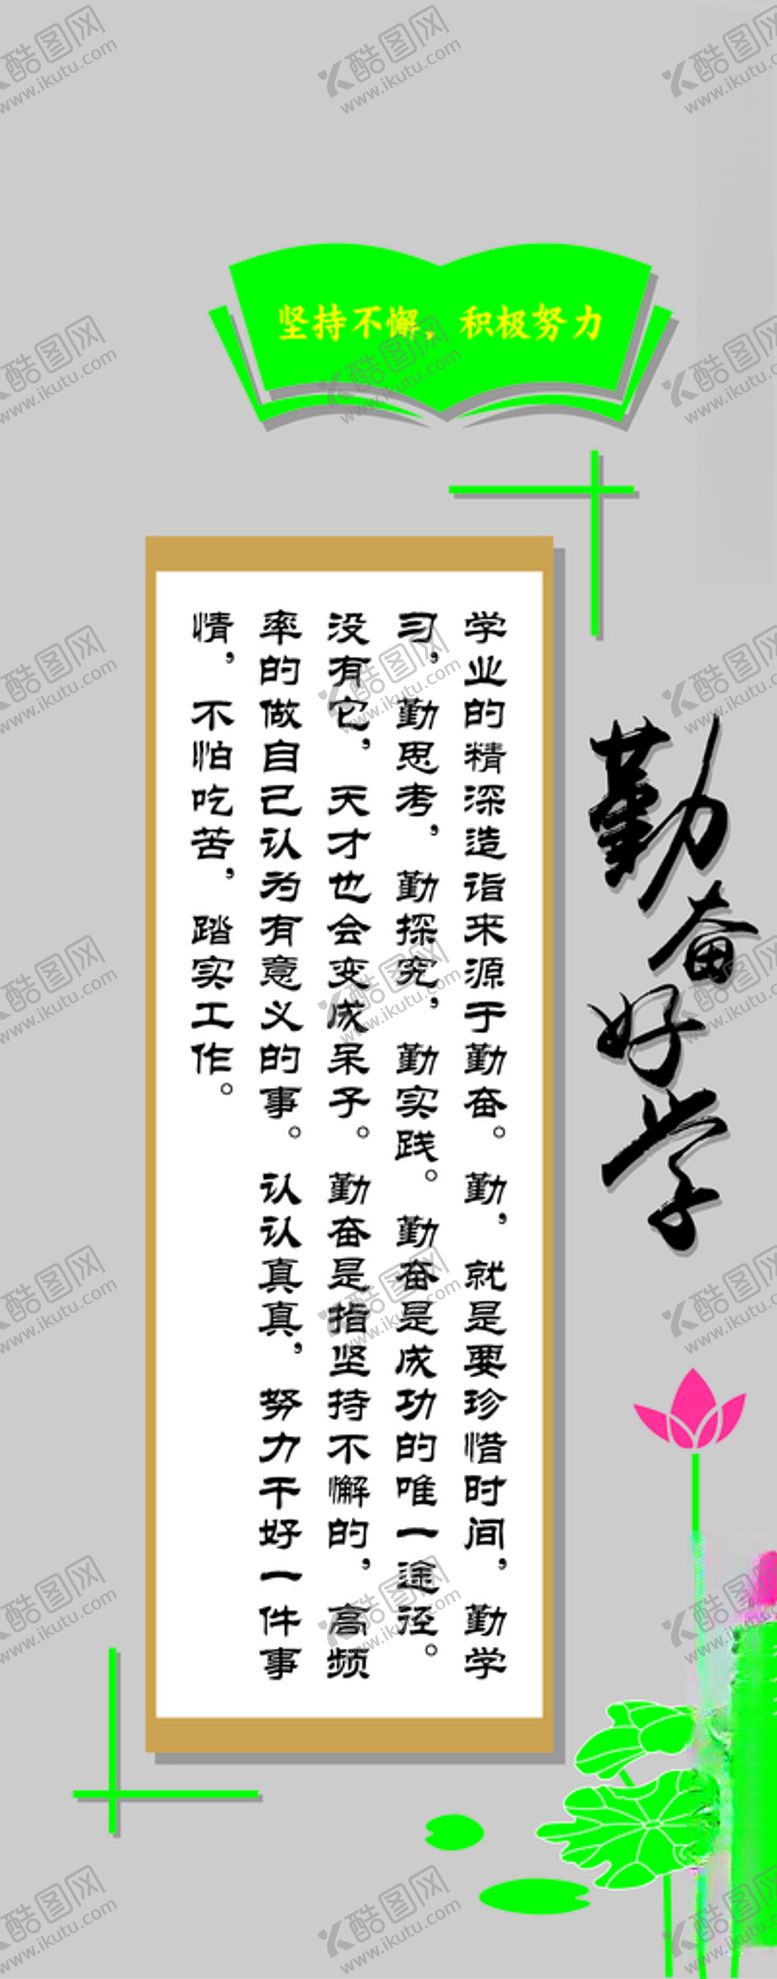 坚持不懈，积极努力
勤奋好学
学业的精深造诣来源于勤奋。勤，就是要珍惜时间，勤学
习，勤思考，勤探究，勤实践。勤奋是成功的唯一途径。
没有它，天才也会变成呆子。勤奋是指坚持不懈的，高频
率的做自己认为有意义的事。认认真真，努力干好一件事
情，不怕吃苦，踏实工作。
酷图网
www.ikutu.com